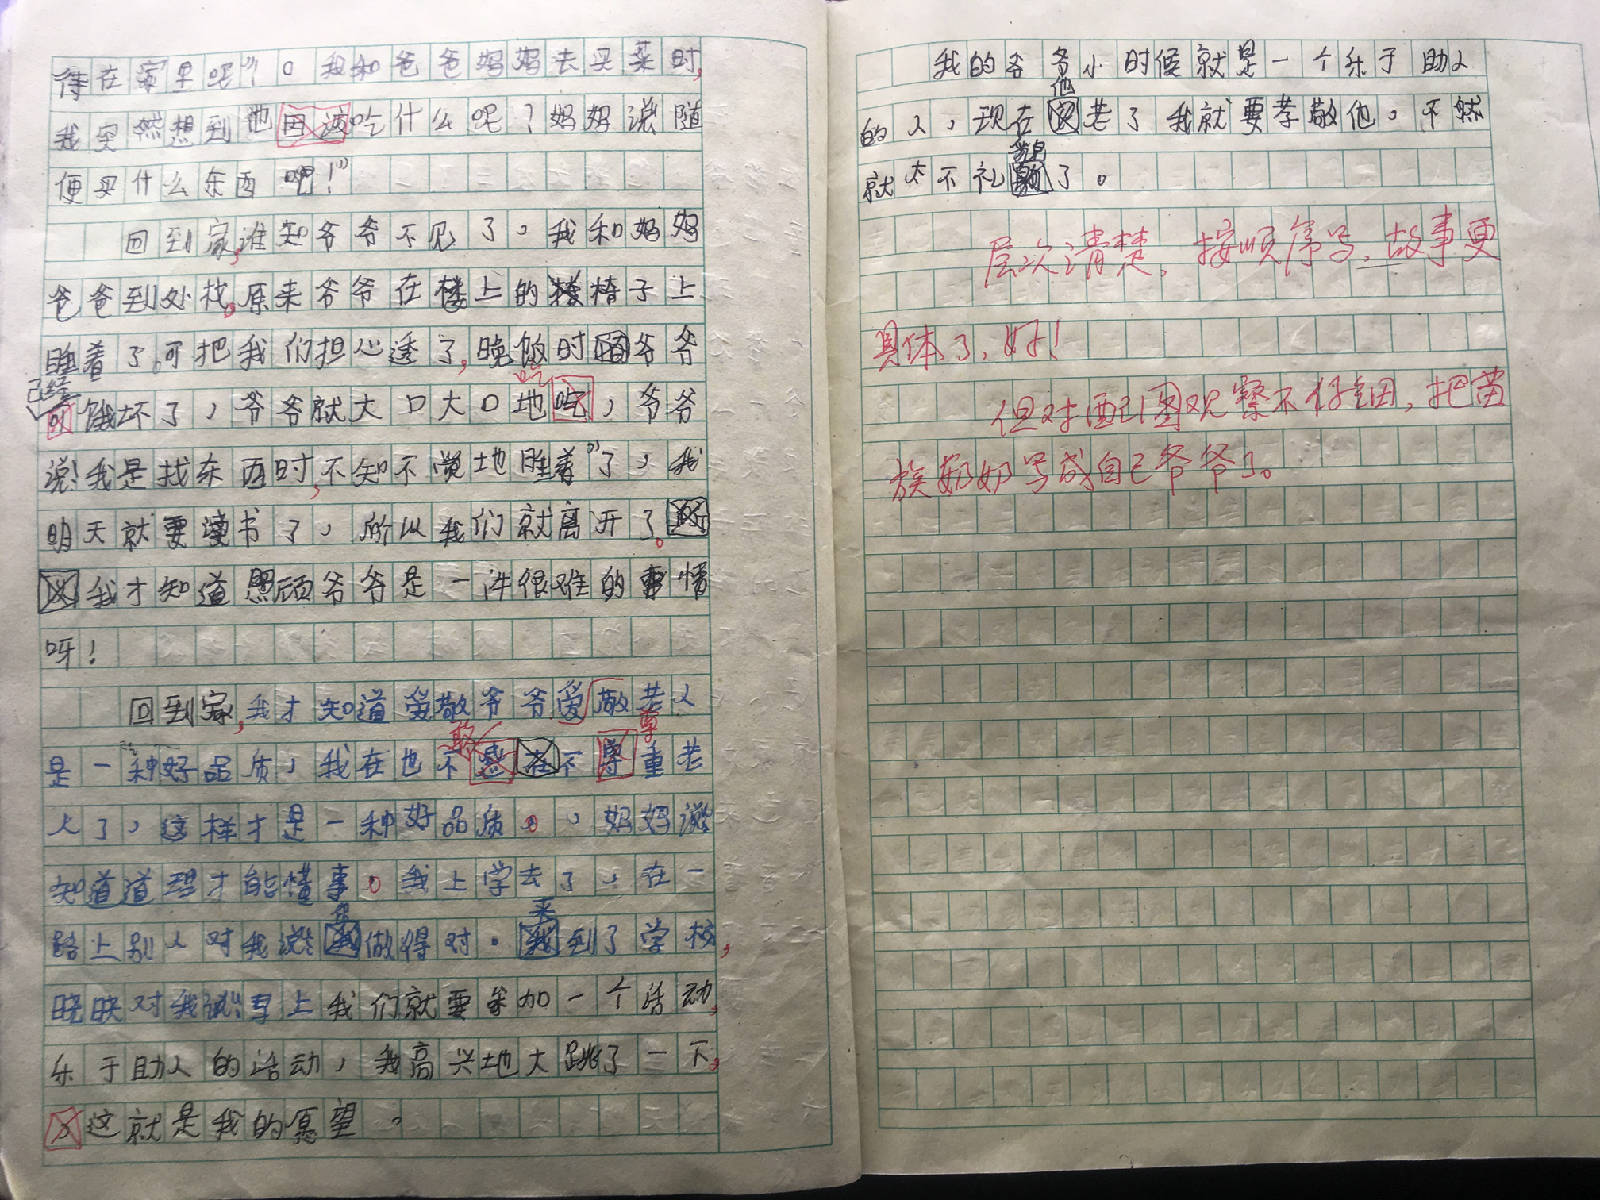 待在家里呢”。我和爸爸妈妈去买菜时,
我突然想到他吃什么呢？妈妈说随
便买什么东西吧！”
回到家,谁知爷爷不见了，我和妈妈
爸爸到处找。原来爷爷在楼上的椅子上
睡着了。可把我们担心透了,晚饭时爷爷
已经
饿坏了，爷爷就大口大口地吃，爷爷
说！我是找东西时,不知不觉地睡着”了，我
明天就要读书了，所以我们就离开了。
我才知道照顾爷爷是一件很难的事情
呀！
回到家,我才知道爱敬爷爷爱敬老人
是一种好品质，我在也不敢不尊重老
人了，这样才是一种好品质。，妈妈说
知道道理才能懂事。我上学去了，在一
路上别人对我说：做得对。来到了学校,
晓映对我说：早上我们就要参加一个活动,
乐于助人的活动，我高兴地大跳了一下,
这就是我的愿望。
我的爷爷小时候就是一个乐于助人
的人，现在他老了我就要孝敬他，不然
就太不礼貌了。
层次清楚，按顺序写，故事更
具体了，好！
但对配图观察不仔细，把苗
族奶奶写成自己爷爷了。